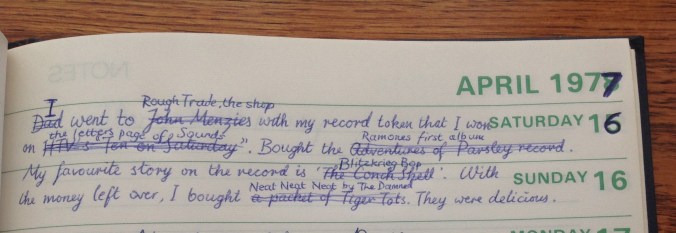 NOTES
APRIL 1977
Rough Trade, the shop
I
Dad went to John Menzies with my record token that I won SATURDAY 16
the letters page of Sounds
on HTV's "Ten on Saturday". Bought the Adventures of Parsley record.
Ramones first album
Blitzkrieg Bop
My favourite story on the record is 'The Conch Shell'. With SUNDAY 16
Neat Neat Neat by The Damned
the money left over, I bought a packet of Tiger Tots. They were delicious.
MONDAY 17